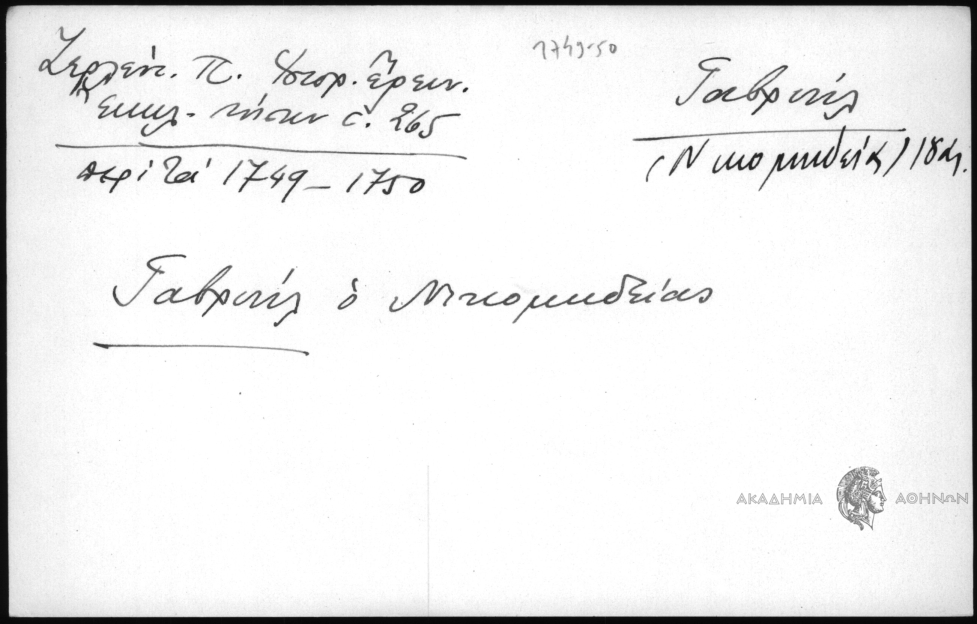 Ζερλέντ. Π. Ἱστορ. Ἔρευν.
Ἐκκλ. νήσων σ. 265
περὶ τὰ 1749-1750
1749-50
Γαβριήλ
(Νικομηδείας) 18 αἰ.
Γαβριήλ ὁ Νικομηδείας
ΑΚΑΔΗΜΙΑ ΑΘΗΝΩΝ